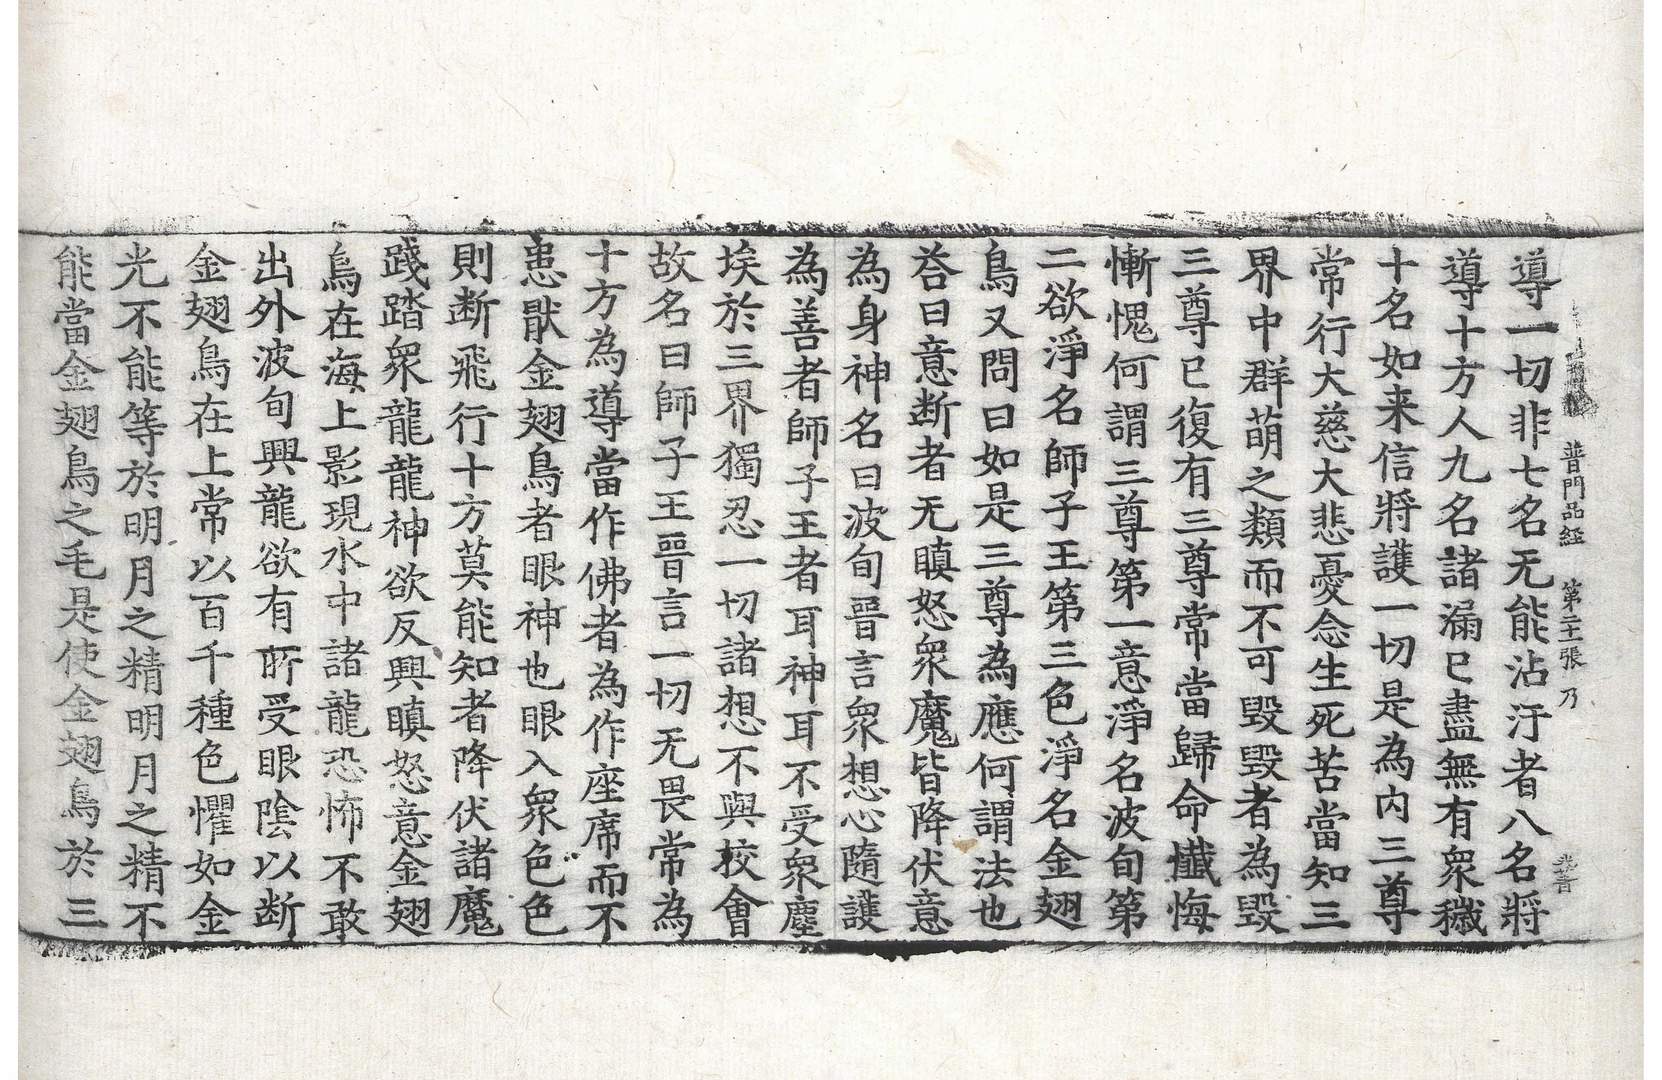 普門品経　第二十張　乃
導一切非七名无能沾汙者八名將
導十方人九名諸漏已盡無有衆穢
十名如来信將護一切是為内三尊
常行大慈大悲憂念生死苦當知三
界中群萌之類而不可毀毀者為毀
三尊已復有三尊常當歸命懺悔
慚愧何謂三尊第一意淨名波旬第
二欲淨名師子王第三色淨名金翅
鳥又問曰如是三尊為應何謂法也
荅曰意断者无瞋怒衆魔皆降伏意
為身神名曰波旬晉言衆想心隨護
為善者師子王者耳神耳不受衆塵
埃於三界獨忍一切諸想不與校會
故名曰師子王晉言一切无畏常為
十方為導當作佛者為作座席而不
恚猒金翅鳥者眼神也眼入衆色色
則断飛行十方莫能知者降伏諸魔
踐踏衆龍龍神欲反興瞋怒意金翅
鳥在海上影現水中諸龍恐怖不敢
出外波旬興龍欲有所受眼陰以断
金翅鳥在上常以百千種色懼如金
光不能等於明月之精明月之精不
能當金翅鳥之毛是使金翅鳥於三